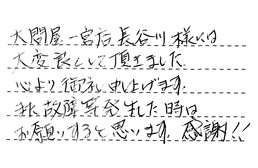 大問屋一宮店長谷川様には
大変良として頂ました
心より御礼申し上げます.
また故障等発生した時は
お願いすると思います. 感謝!!